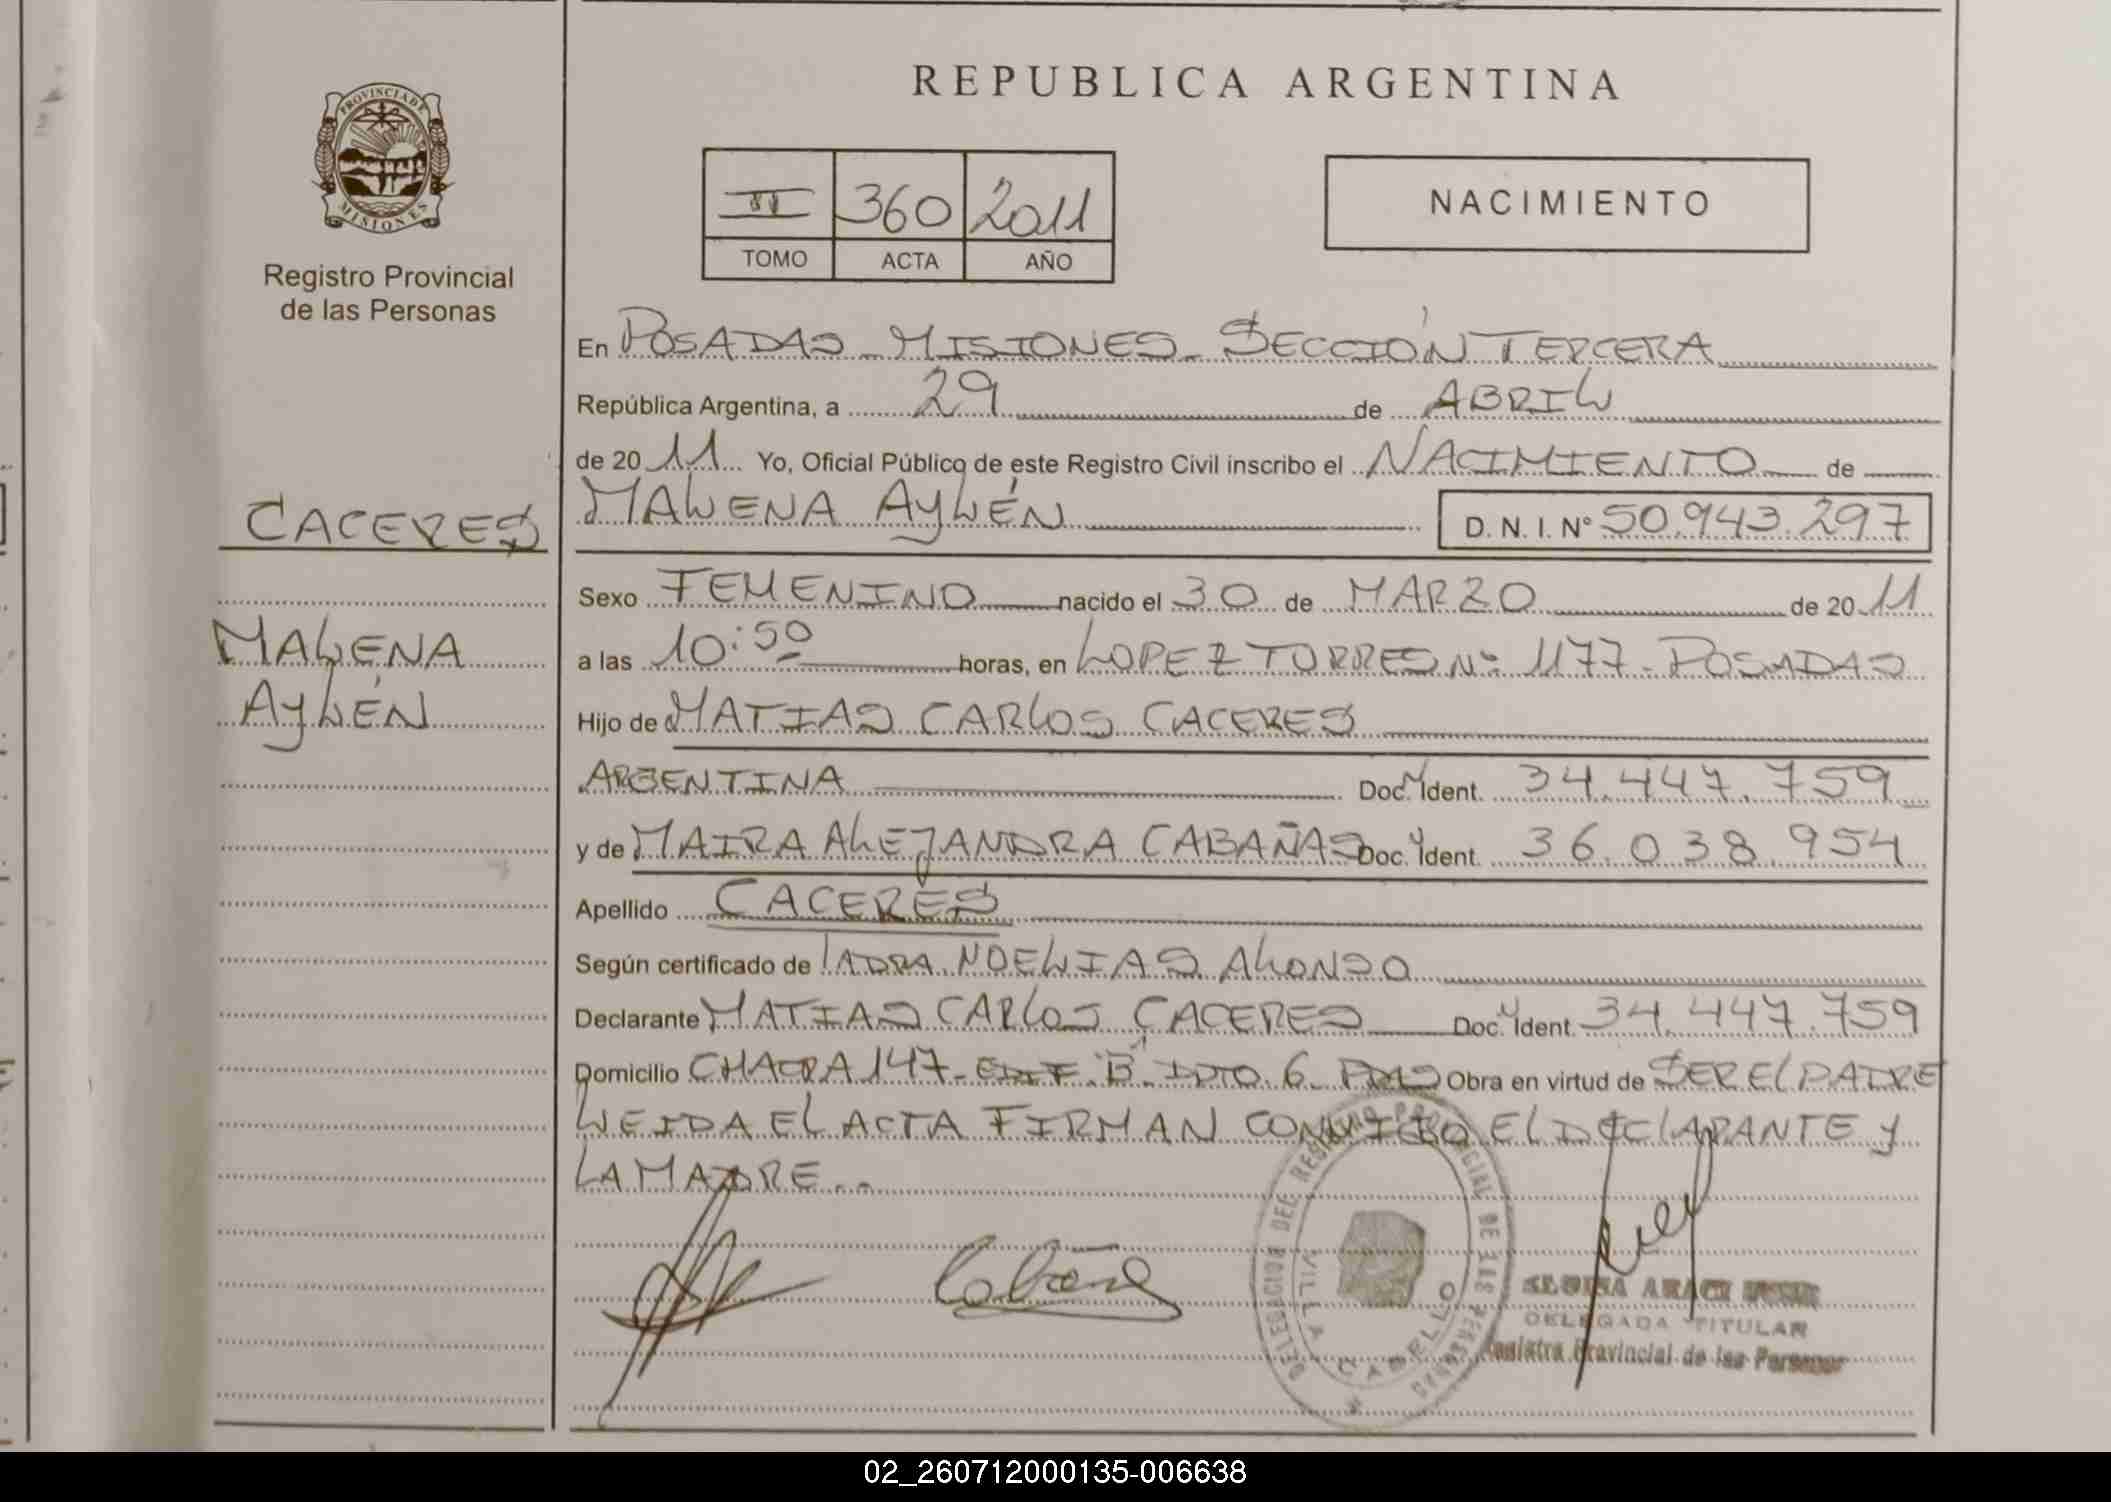 REPUBLICA ARGENTINA
PROVINCIA DE
MISIONES
Registro Provincial
de las Personas
II 360 2011
TOMO ACTA AÑO
NACIMIENTO
En POSADAS MISIONES SECCIÓN TERCERA
República Argentina, a 29 de ABRIL
de 2011 Yo, Oficial Público de este Registro Civil inscribo el NACIMIENTO de
CACERES
MALENA AYLÉN D. N. I. Nº 50.943.297
Sexo FEMENINO nacido el 30 de MARZO de 2011
MALENA
a las 10:50 horas, en LOPEZ TORRES Nº 1177 - POSADAS
AYLÉN
Hijo de MATIAS CARLOS CACERES
ARGENTINA Doc. Ident. 34.447.759
y de MAIRA ALEJANDRA CABAÑAS Doc. Ident. 36.038.954
Apellido CACERES
Según certificado de NOELIAS ALONSO
Declarante MATIAS CARLOS CACERES Doc. Ident. 34.447.759
Domicilio CHACRA 147 - EDIF. "B" DPTO. 6 - PDAS Obra en virtud de SER EL PADRE
LEIDA EL ACTA FIRMAN CONMIGO EL DECLARANTE Y
LA MADRE.-
Cabañas
DELEGACION DEL REGISTRO PROVINCIAL DE LAS PERSONAS
VILLA CABELLO
DELEGADA TITULAR
Registro Provincial de las Personas
02_260712000135-006638